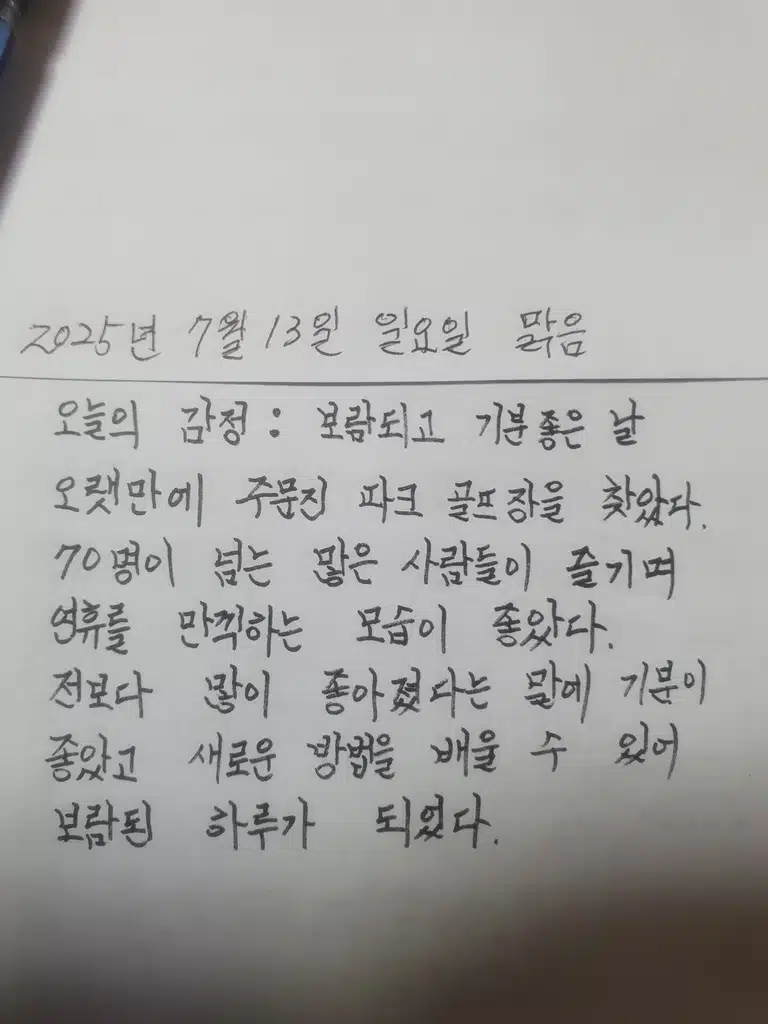 2025년 7월 13일 일요일 맑음
오늘의 감정 : 보람되고 기분좋은 날
오랫만에 주문진 파크 골프장을 찾았다.
70명이 넘는 많은 사람들이 즐기며
연휴를 만끽하는 모습이 좋았다.
전보다 많이 좋아졌다는 말에 기분이
좋았고 새로운 방법을 배울 수 있어
보람된 하루가 되었다.